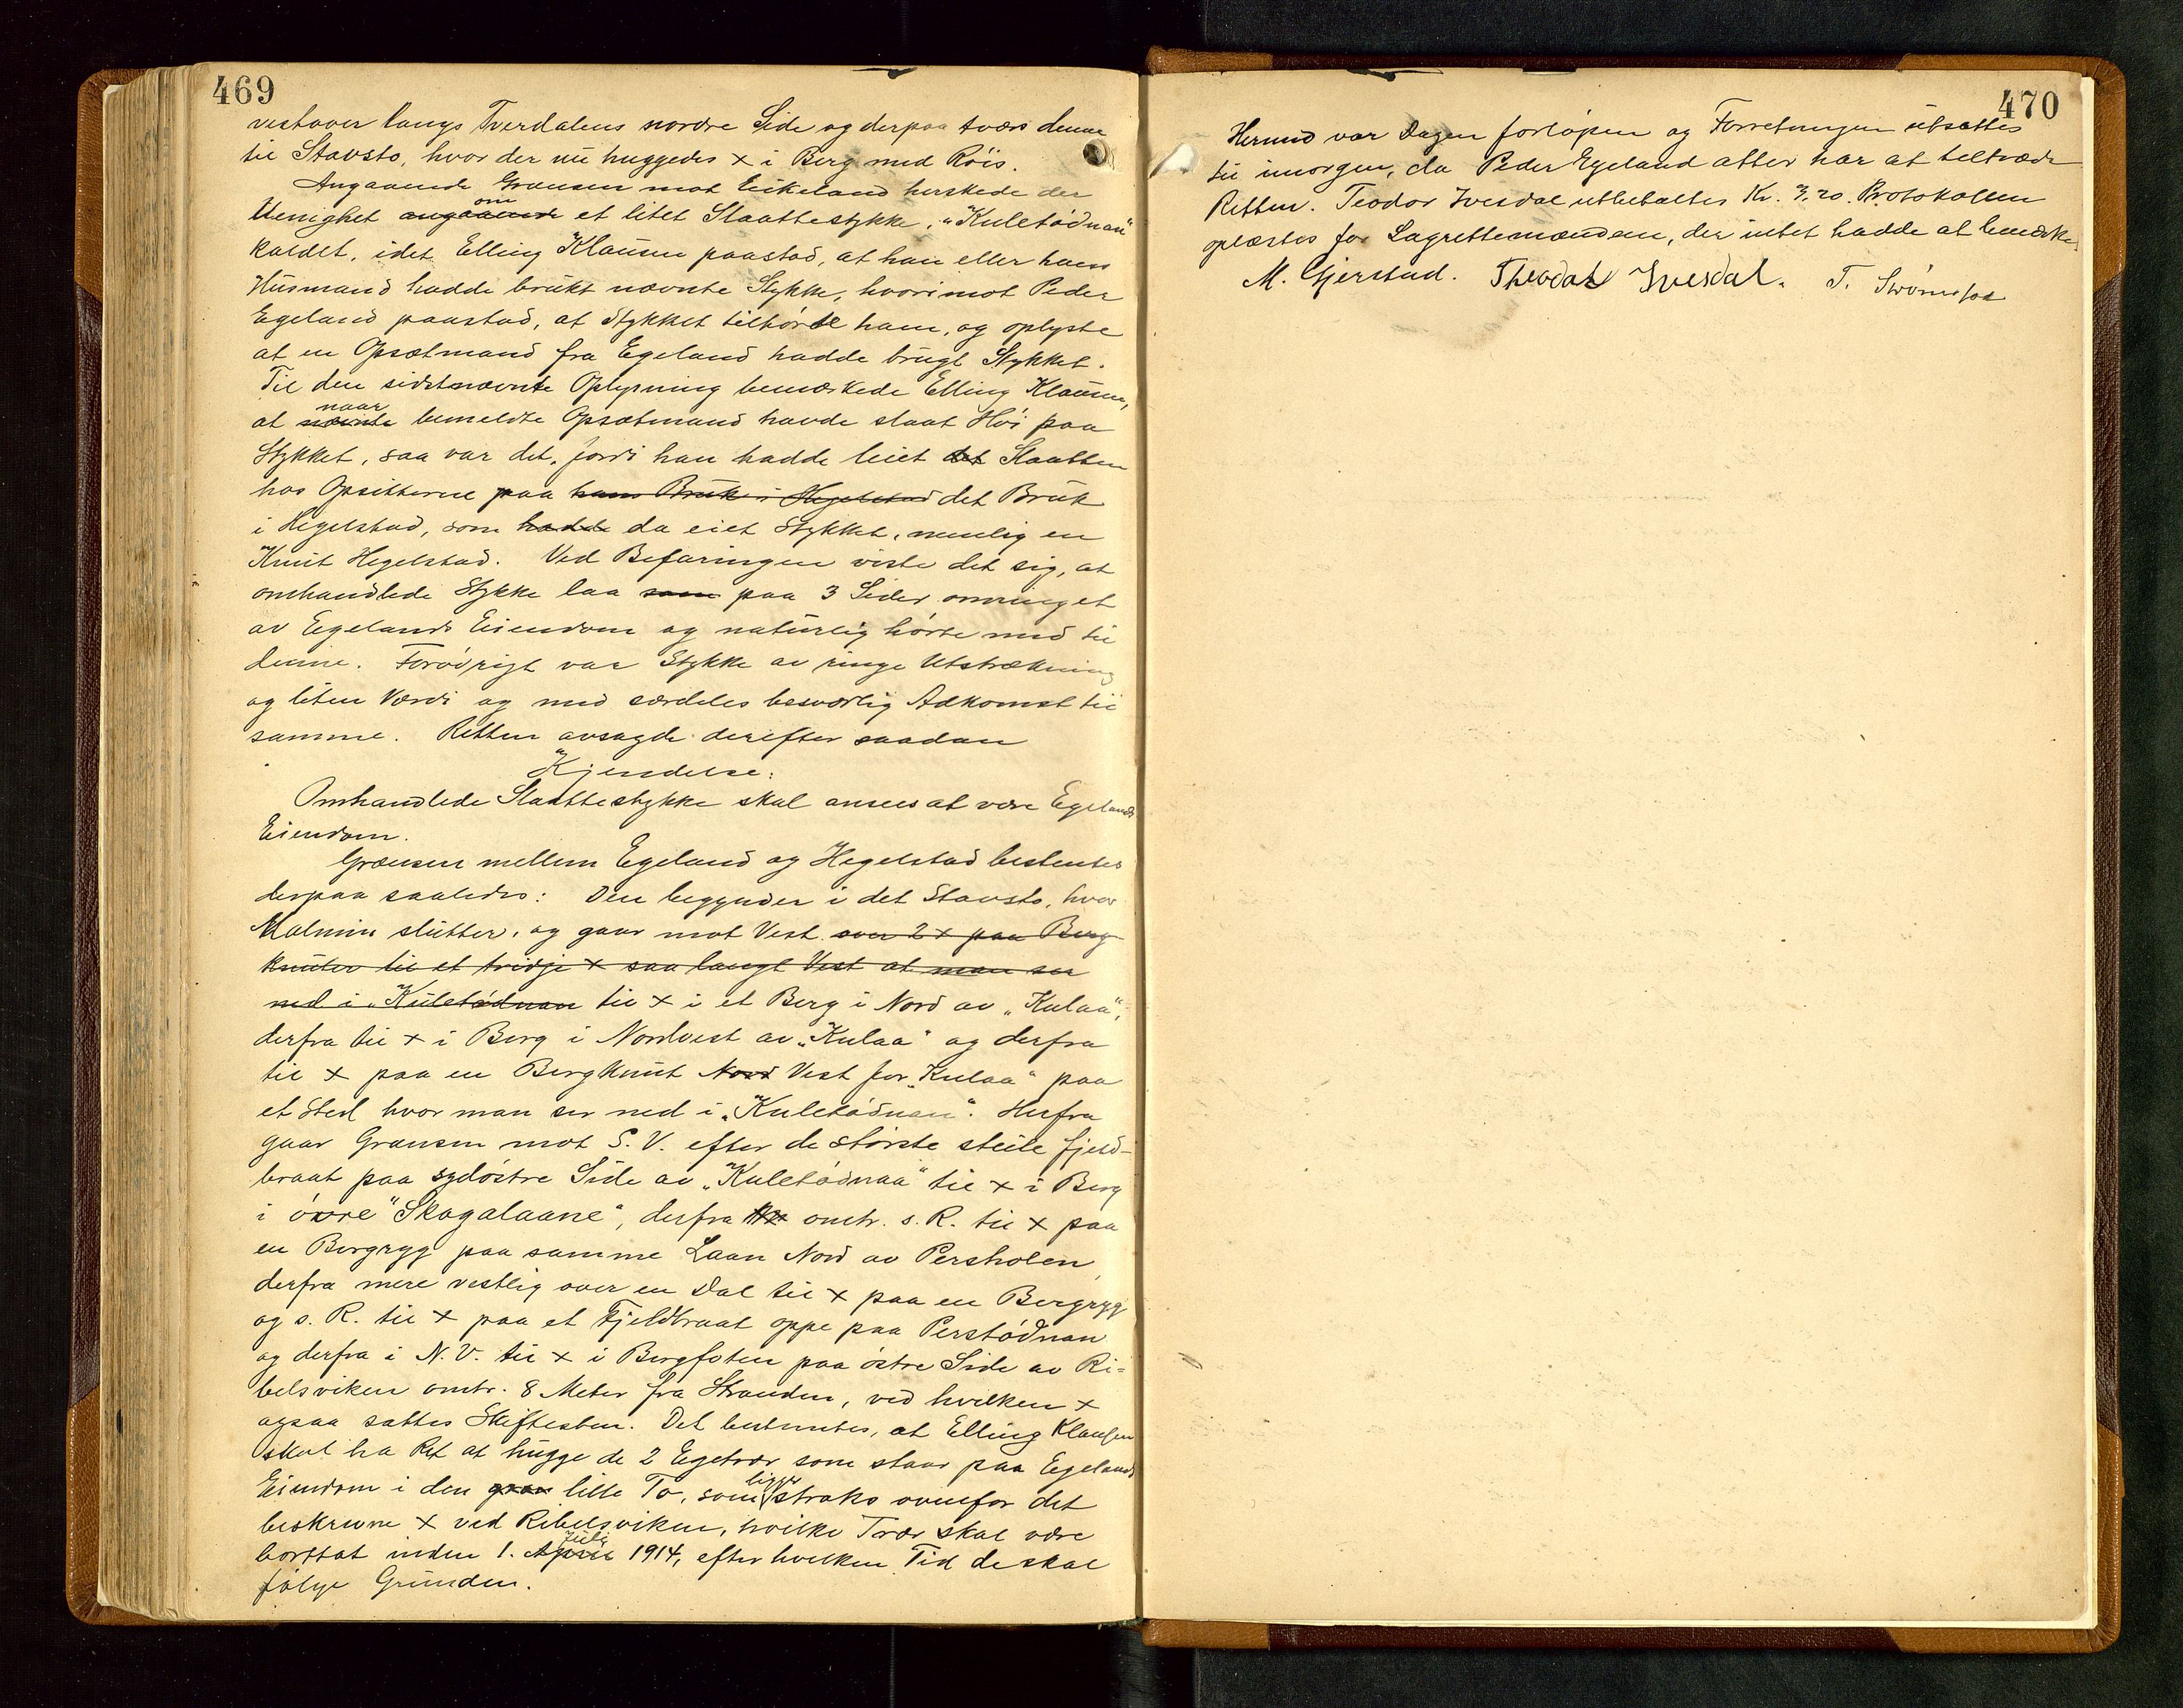 469
vestover langs Tverdalens nordre Side og derpaa tvers denne
til Stavsto, hvor der nu huggedes x i Berg med Röis.
Angaaende Grænsen mot Eikeland herskede der
Uenighet angaaende om et litet Slaattestykke, "Kuletödnan"
kaldet, idet Elling Klausen paastod, at han eller hans
Husmand hadde brukt nævnte Stykke, hvorimot Peder
Egeland paastod, at Stykket tilhörte ham, og oplyste
at en Opsætmand fra Egeland hadde brugt Stykket.
Til den sidstnævnte Oplysning bemærkede Elling Klausen,
at nævnte naar bemeldte Opsætmand havde slaat Höi paa
Stykket, saa var det, fordi han hadde leiet det Slaatten
hos Opsitterne paa hans Bruk i Hegelstad det Bruk
i Hegelstad, som hadde da eiet Stykket, nemlig en
Knut Hegelstad. Ved Befaringen viste det sig, at
omhandlede Stykke laa som paa 3 Sider omringet
av Egelands Eiendom og naturlig hörte med til
denne. Forövrigt var Stykke av ringe Utstrækning
og liten Værdi og med særdeles besværlig Adkomst til
samme. Retten avsagde derefter saadan
Kjendelse:
Omhandlede Slaattestykke skal ansees at være Egelands
Eiendom.
Grænsen mellem Egeland og Hegelstad bestemtes
derpaa saaledes: Den begynder i det Stavsto, hvor
Malmin slutter, og gaar mot Vest over 2 x paa Berg
knuter til et tridje x saa langt Vest at man ser
ned i "Kuletödnan til x i et Berg i Nord av "Kulaa",
derfra til x i Berg i Nordvest av "Kulaa" og derfra
til x paa en Bergknut Nord Vest for "Kulaa" paa
et Sted hvor man ser ned i "Kuletödnan". Herfra
gaar Grænsen mot S.V. efter de störste steile Fjeld-
braat paa sydöstre Side av "Kuletödnaa" til x i Berg
i övre "Skogalaane", derfra omtr. s. R. til x paa
en Bergryg paa samme Laan Nord av Persholen,
derfra mere vestlig over en Dal til x paa en Bergryg
og s. R. til x paa et Fjeldbraat oppe paa Perstödnan
og derfra i N.V. til x i Bergfoten paa östre Side av Ri=
belsviken omtr. 8 Meter fra Stranden, ved hvilken x
ogsaa sattes Skiftesten. Det bestemtes, at Elling Klausen
skal ha Ret at hugge de 2 Egetrær som staar paa Egelands
Eiendom i den lille To, som ligger straks ovenfor det
beskrevne x ved Ribelsviken, hvilke Trær skal være
borttat inden 1. April Juli 1914, efter hvilken Tid de skal
fölge Grunden.
470
Hermed var Dagen forlöpen og Forretningen utsattes
til imorgen, da Peder Egeland atter har at tiltræde
Retten. Teodor Ivesdal utbetaltes Kr. 3,20. Protokollen
oplæstes for Lagrettemændene, der intet hadde at bemærke.
M. Gjerstad. Theodor Ivesdal. T. Svömfos